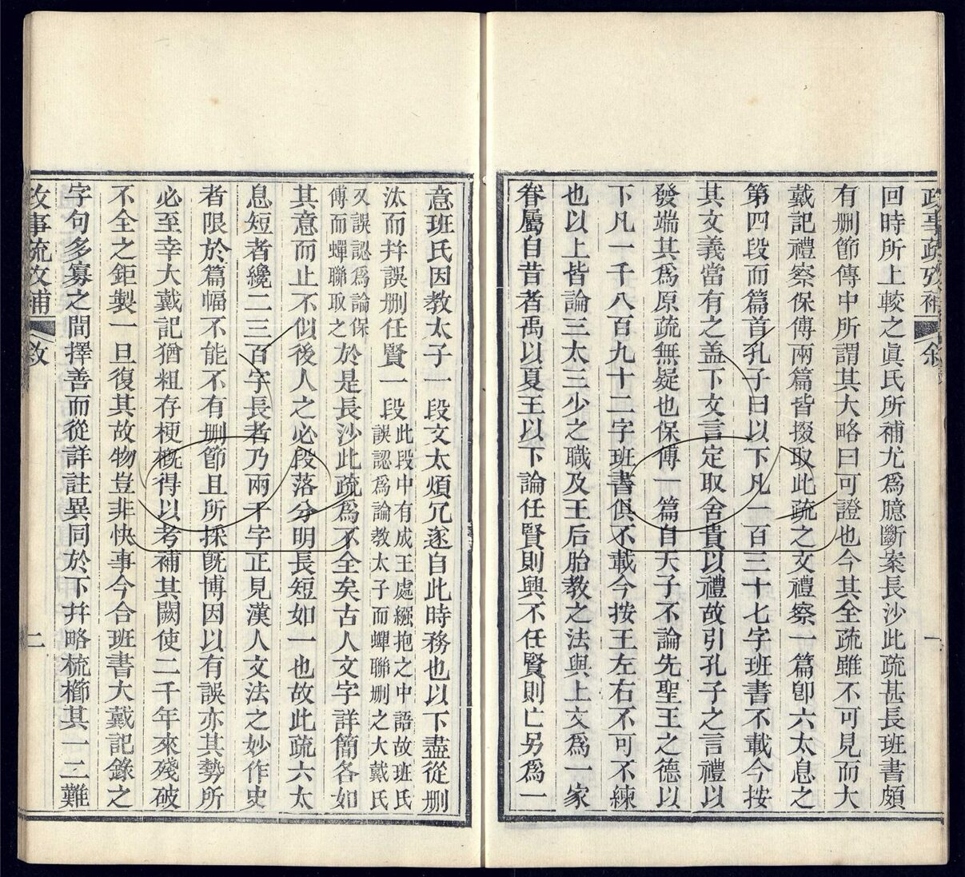 政事疏攷補
敘
一
回時所上較之眞氏所補尤爲臆斷案長沙此疏甚長班書頗
有刪節傳中所謂其大略曰可證也今其全疏雖不可見而大
戴記禮察保傳兩篇皆掇取此疏之文禮察一篇卽六太息之
第四段而篇首孔子曰以下凡一百三十七字班書不載今按
其文義當有之蓋下文言定取舍貴以禮故引孔子之言禮以
發端其爲原疏無疑也保傅一篇自天子不論先聖王之德以
下凡一千八百九十二字班書俱不載今按王左右不可不練
也以上皆論三太三少之職及王后胎教之法與上文爲一家
眷屬自昔者禹以夏王以下論任賢則興不任賢則亡另爲一
意班氏因教太子一段文太煩冗遂自此時務也以下盡從刪
汰而幷誤刪任賢一段此段中有成王處繦抱之中語故班氏
誤認爲論教太子而蟬聯刪之大戴氏
又誤認爲論保
傅而蟬聯取之於是長沙此疏爲不全矣古人文字詳簡各如
其意而止不似後人之必段落分明長短如一也故此疏六太
息短者纔二三百字長者乃兩千字正見漢人文法之妙作史
者限於篇幅不能不有刪節且所採旣博因以有誤亦其勢所
必至幸大戴記猶粗存梗概得以考補其闕使二千年來殘破
不全之鉅製一旦復其故物豈非快事今合班書大戴記錄之
字句多寡之間擇善而從詳註異同於下幷略梳櫛其一二難
政事疏攷補
敘
二